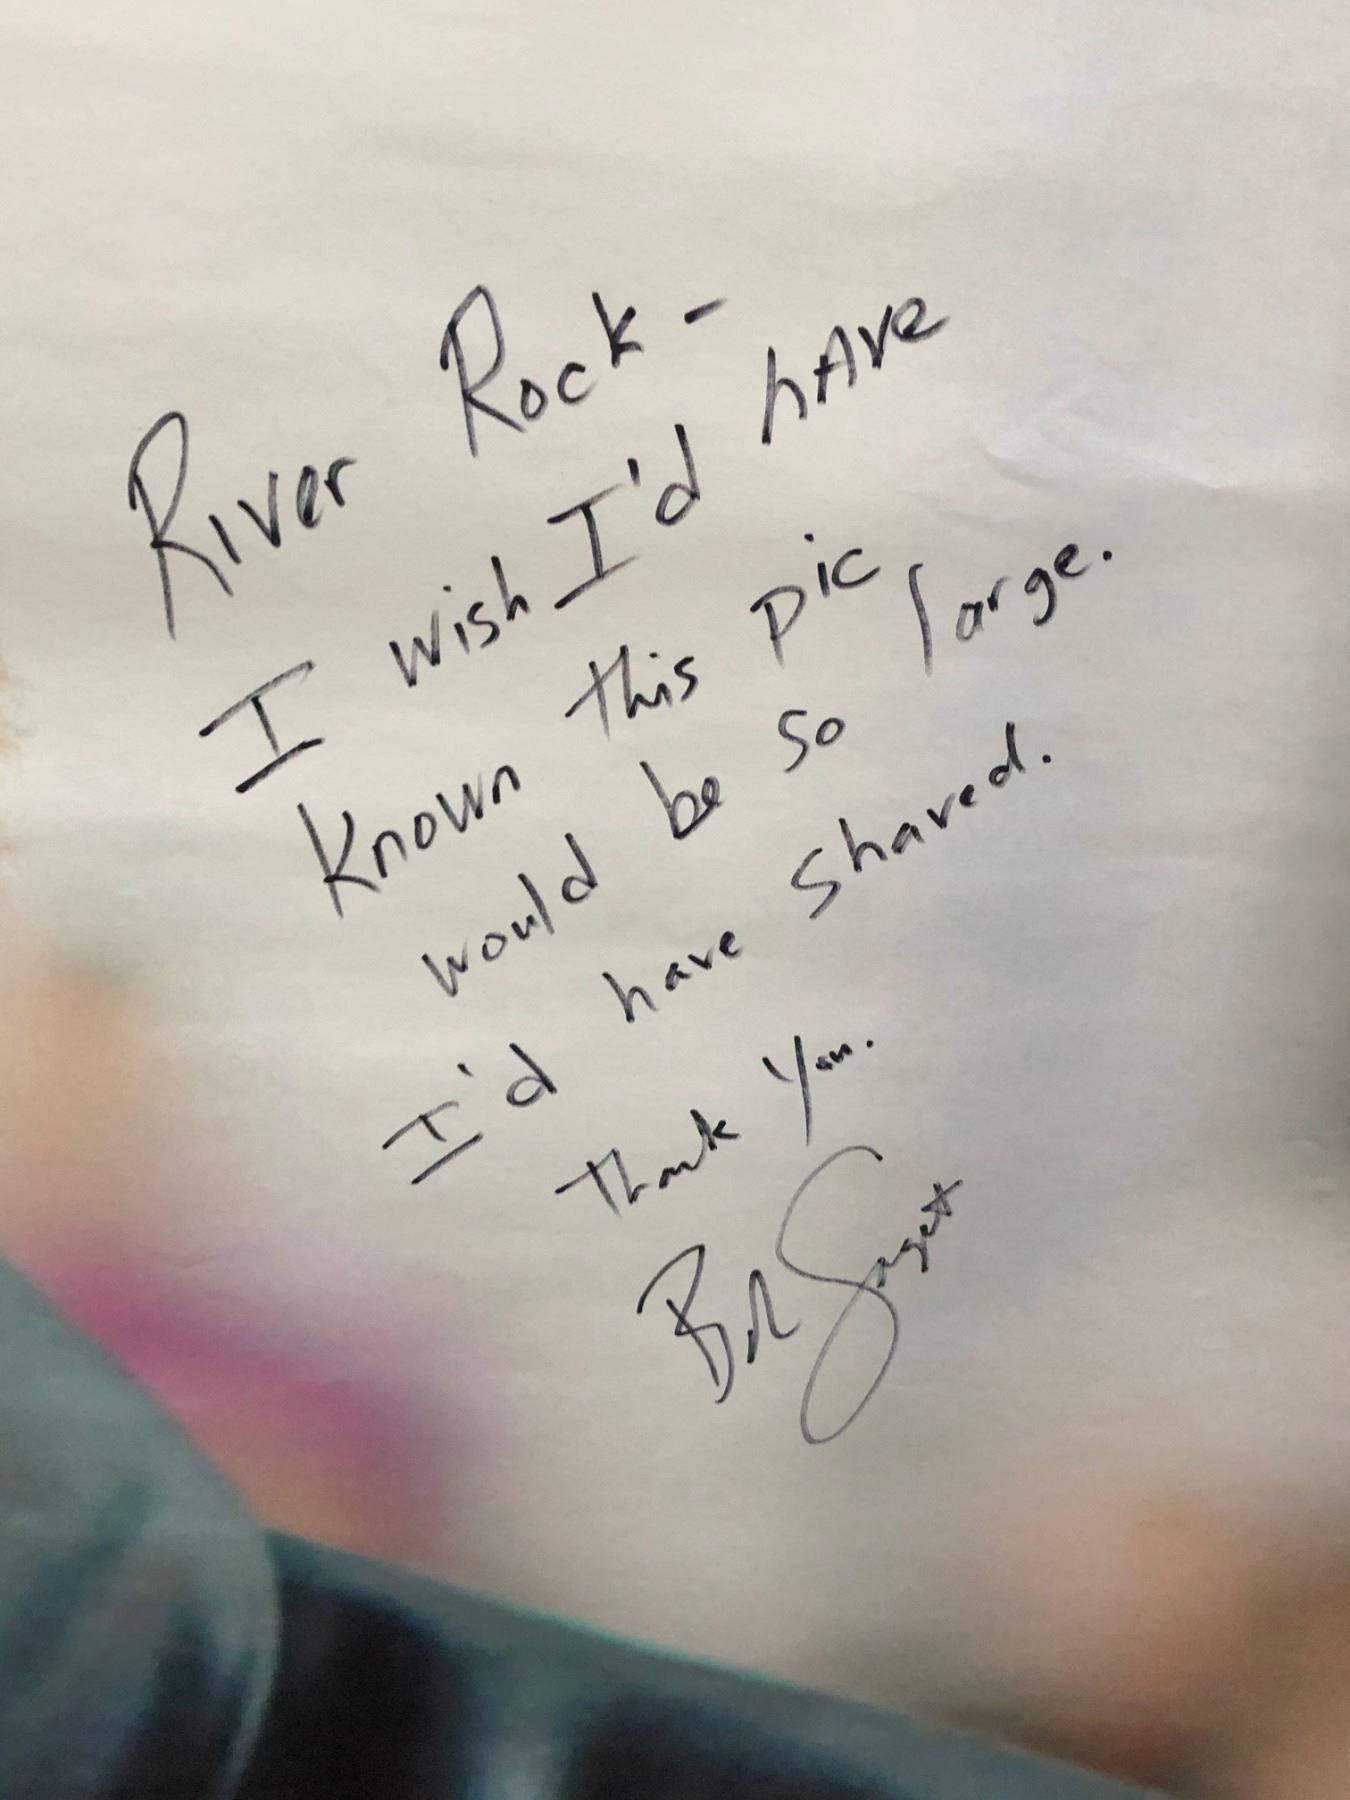 River Rock -
I wish I'd have
known this pic
would be so large.
I'd have shaved.
Thank you.
Bob Saget